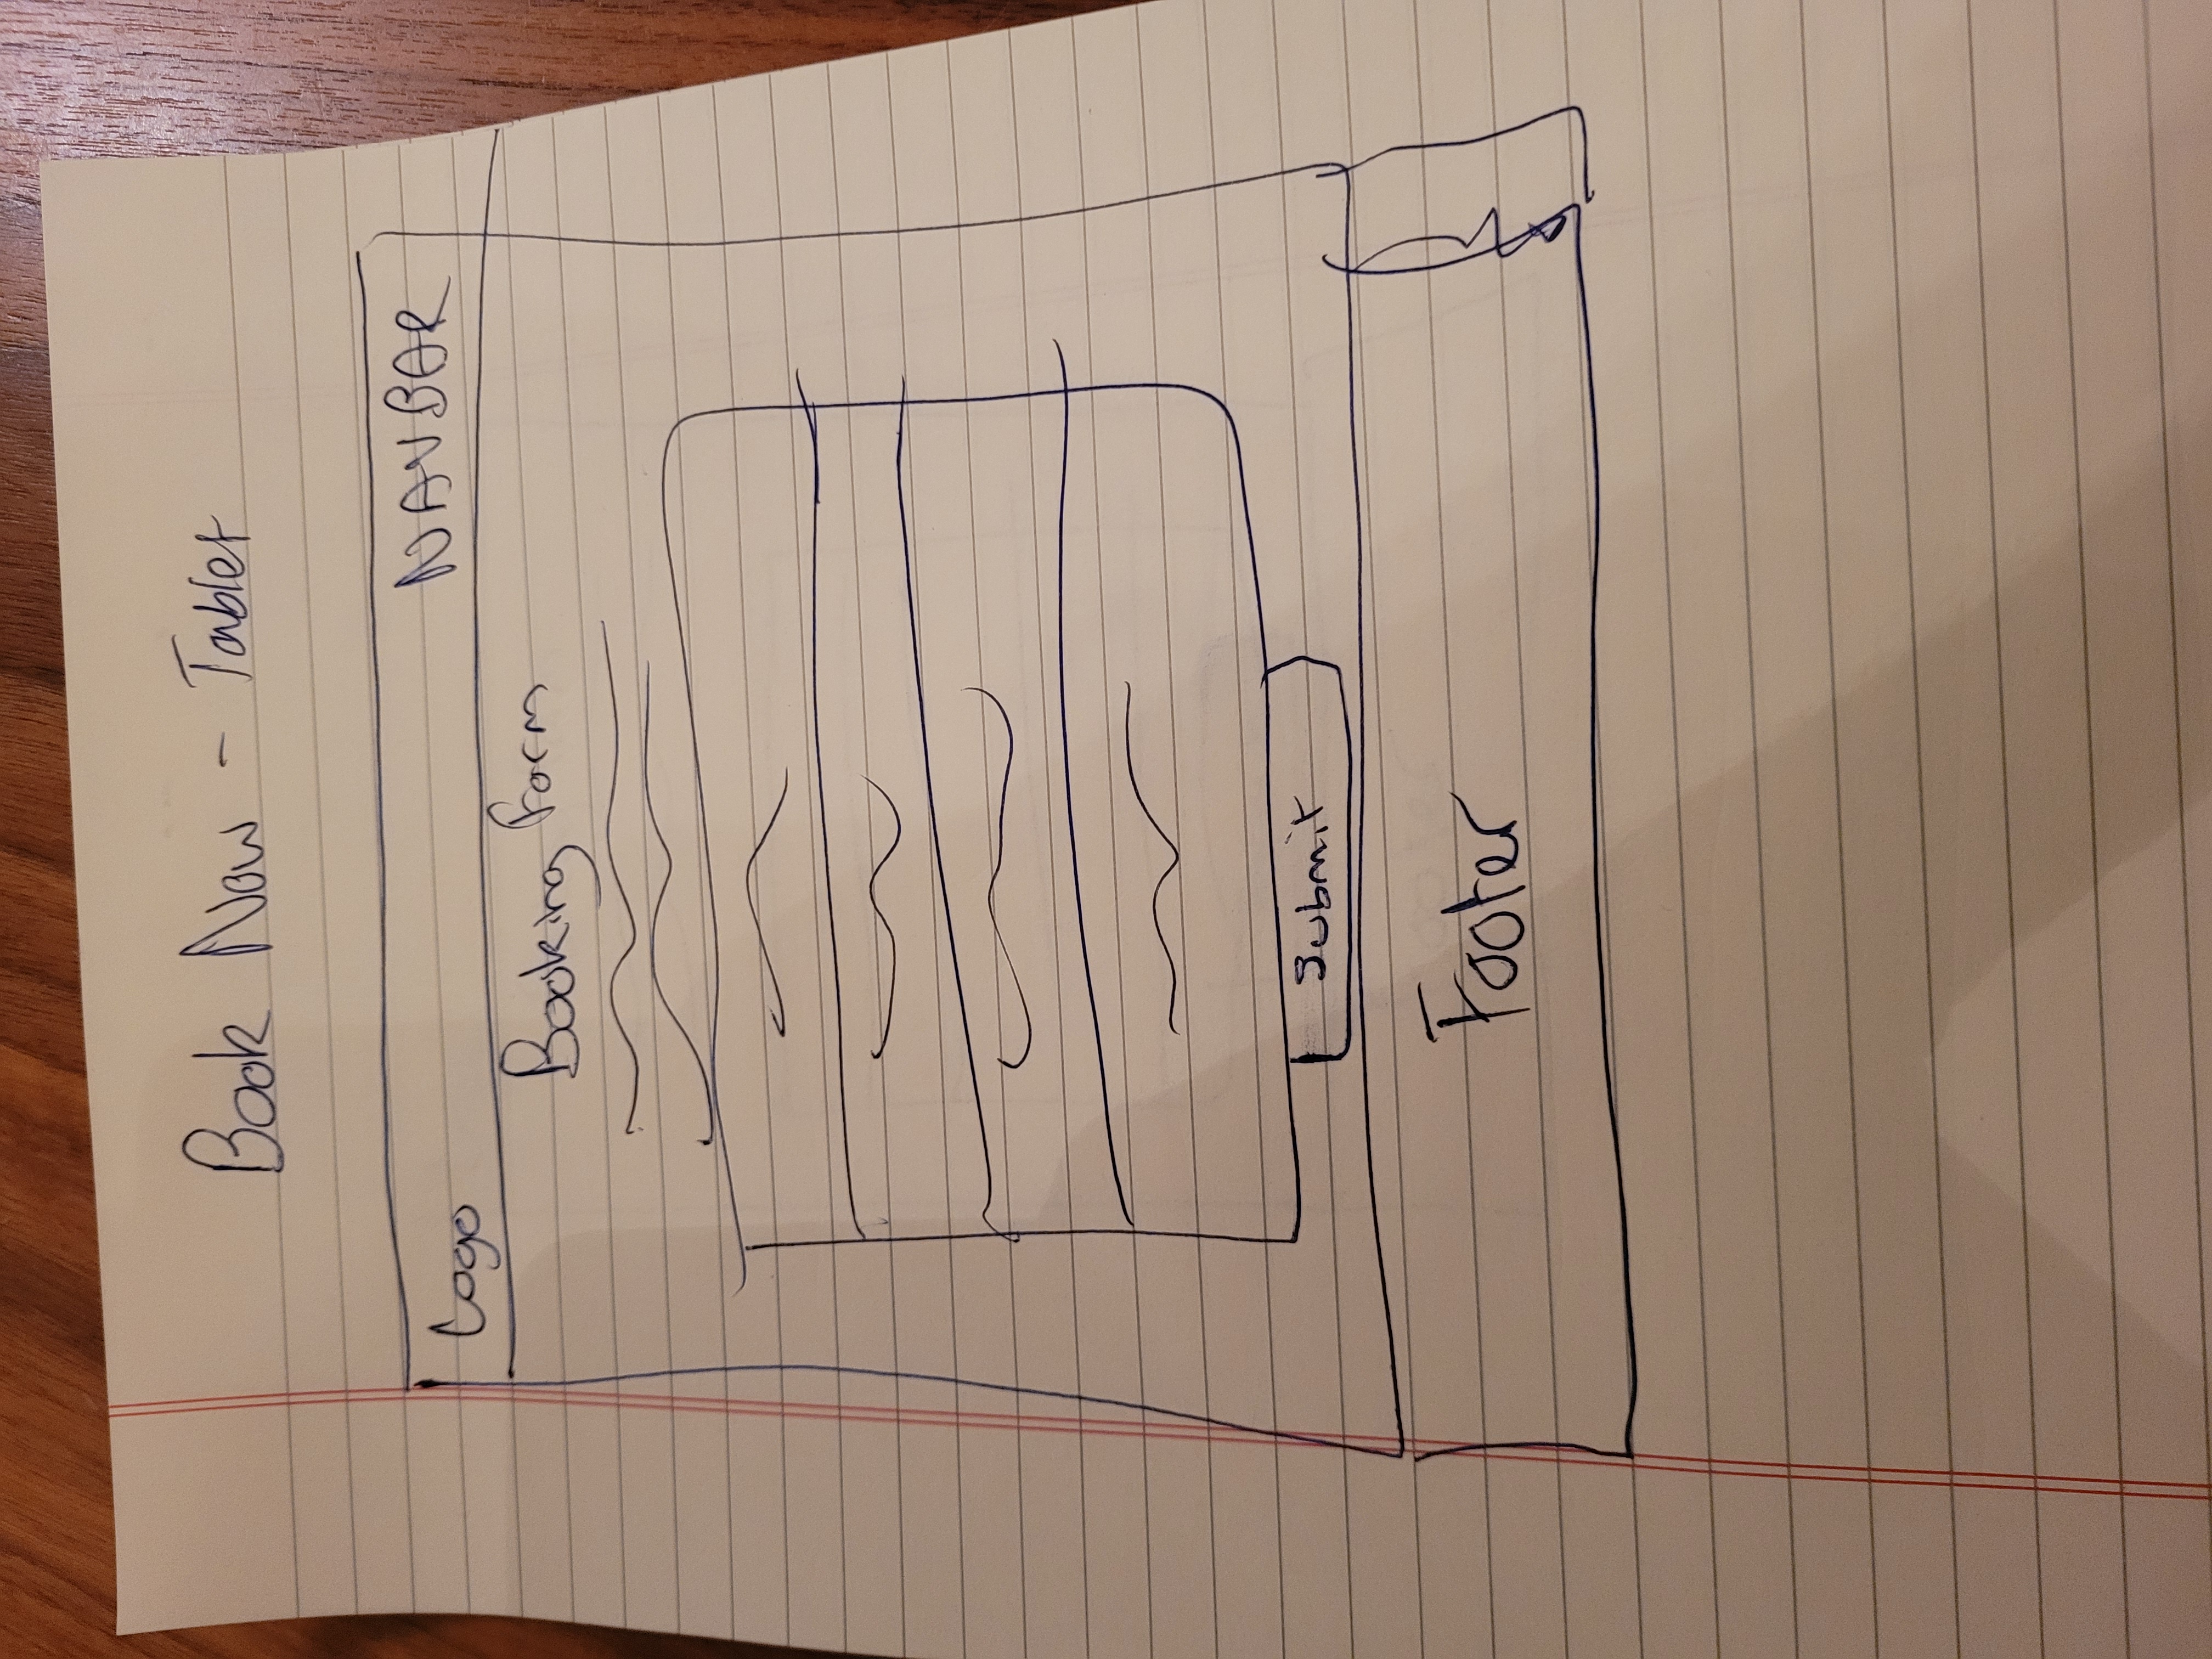 Book Now - Tablet
Logo NAVBAR
Booking Form
Submit
Footer